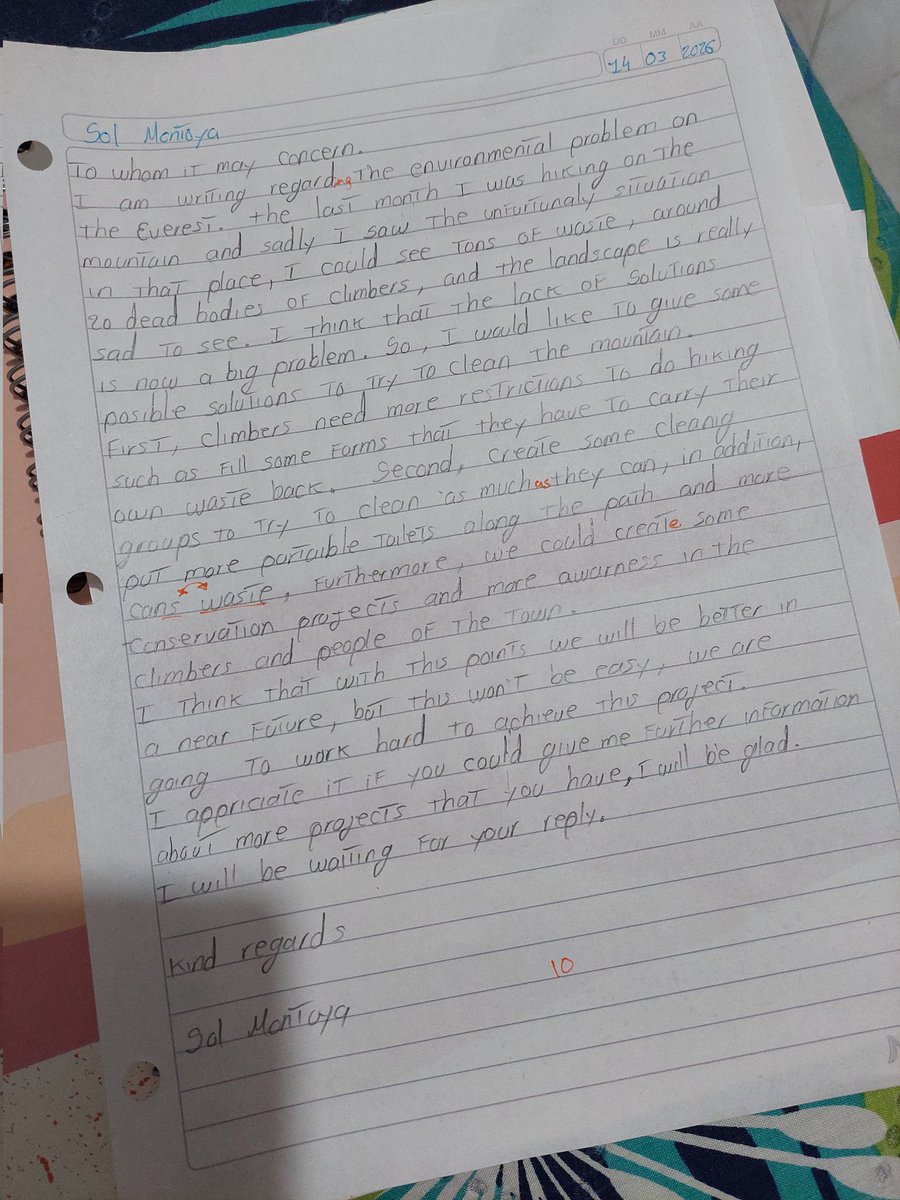 DD MM AA
14 03 2026
Sol Montoya
To whom it may concern.
I am writing regarding the environmental problem on
the Everest. the last month I was hiking on the
mountain and sadly I saw the unfortunaly situation
in that place, I could see tons of waste, around
20 dead bodies of climbers, and the landscape is really
sad to see. I think that the lack of solutions
is now a big problem. So, I would like to give some
posible solutions to try to clean the mountain.
First, climbers need more restrictions to do hiking
such as fill some forms that they have to carry their
own waste back. Second, create some cleanig
groups to try to clean as much as they can, in addition,
put more portaible toilets along the path and more
cans waste, furthermore, we could create some
conservation projects and more awarness in the
climbers and people of the town.
I think that with this points we will be better in
a near future, but this won't be easy, we are
going to work hard to achieve this project.
I appriciate it if you could give me further information
about more projects that you have, I will be glad.
I will be waiting for your reply.
Kind regards
10
Sol Montoya